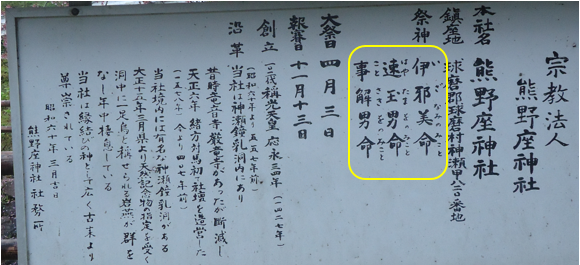 宗教法人
熊野座神社
本社名 熊野座神社
鎮座地 球磨郡球磨村神瀬甲 番地
祭神 伊邪美命
いざなみのみこと
速玉男命
はやたまをのみこと
事解男命
ことさきをのみこと
大祭日 四月三日
報賽日 十一月十三日
創立 称光天皇 応永三四年(一四二七年)
(昭和六十年より五五七年前)
沿革 当社は神瀬鐘乳洞内にあり
昔時 があったが断滅し
天正六年 緒方対馬初社壇を造営した
(一五七八年) 今より四〇七年前)
当社境内には有名な神瀬鐘乳洞がある
大正十五年三月県より天然記念物の指定を受く
洞中に一足鳥と稱せられる岩燕が群を
なし年中棲息している
当社は縁結びの神として 古来より
崇されている
昭和六十年三月吉日
熊野座神社社務所